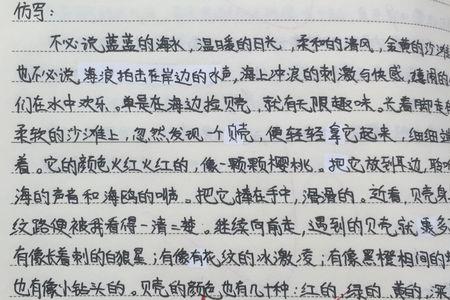 仿写:
不必说蓝蓝的海水,温暖的日光,柔和的清风,金黄的沙滩
也不必说海浪拍击在岸边的水声,海上冲浪的刺激与快感,
们在水中欢乐。单是在海边捡贝壳,就有无限趣味。光着脚走
柔软的沙滩上,忽然发现一个贝壳,便轻轻拿它起来,细细端
着。它的颜色火红火红的,像一颗颗樱桃。把它放到耳边,聆听
海的声音和海鸥的叫声。把它捧在手中,滑滑的。近看,贝壳身
纹路便被我看得一清二楚。继续向前走,遇到的贝壳就更多
有像长着刺的白狼星;有像有花纹的冰激凌;有像黑橙相间的
也有像小钻头的。贝壳的颜色也有几十种:红的,绿的,黄的,深